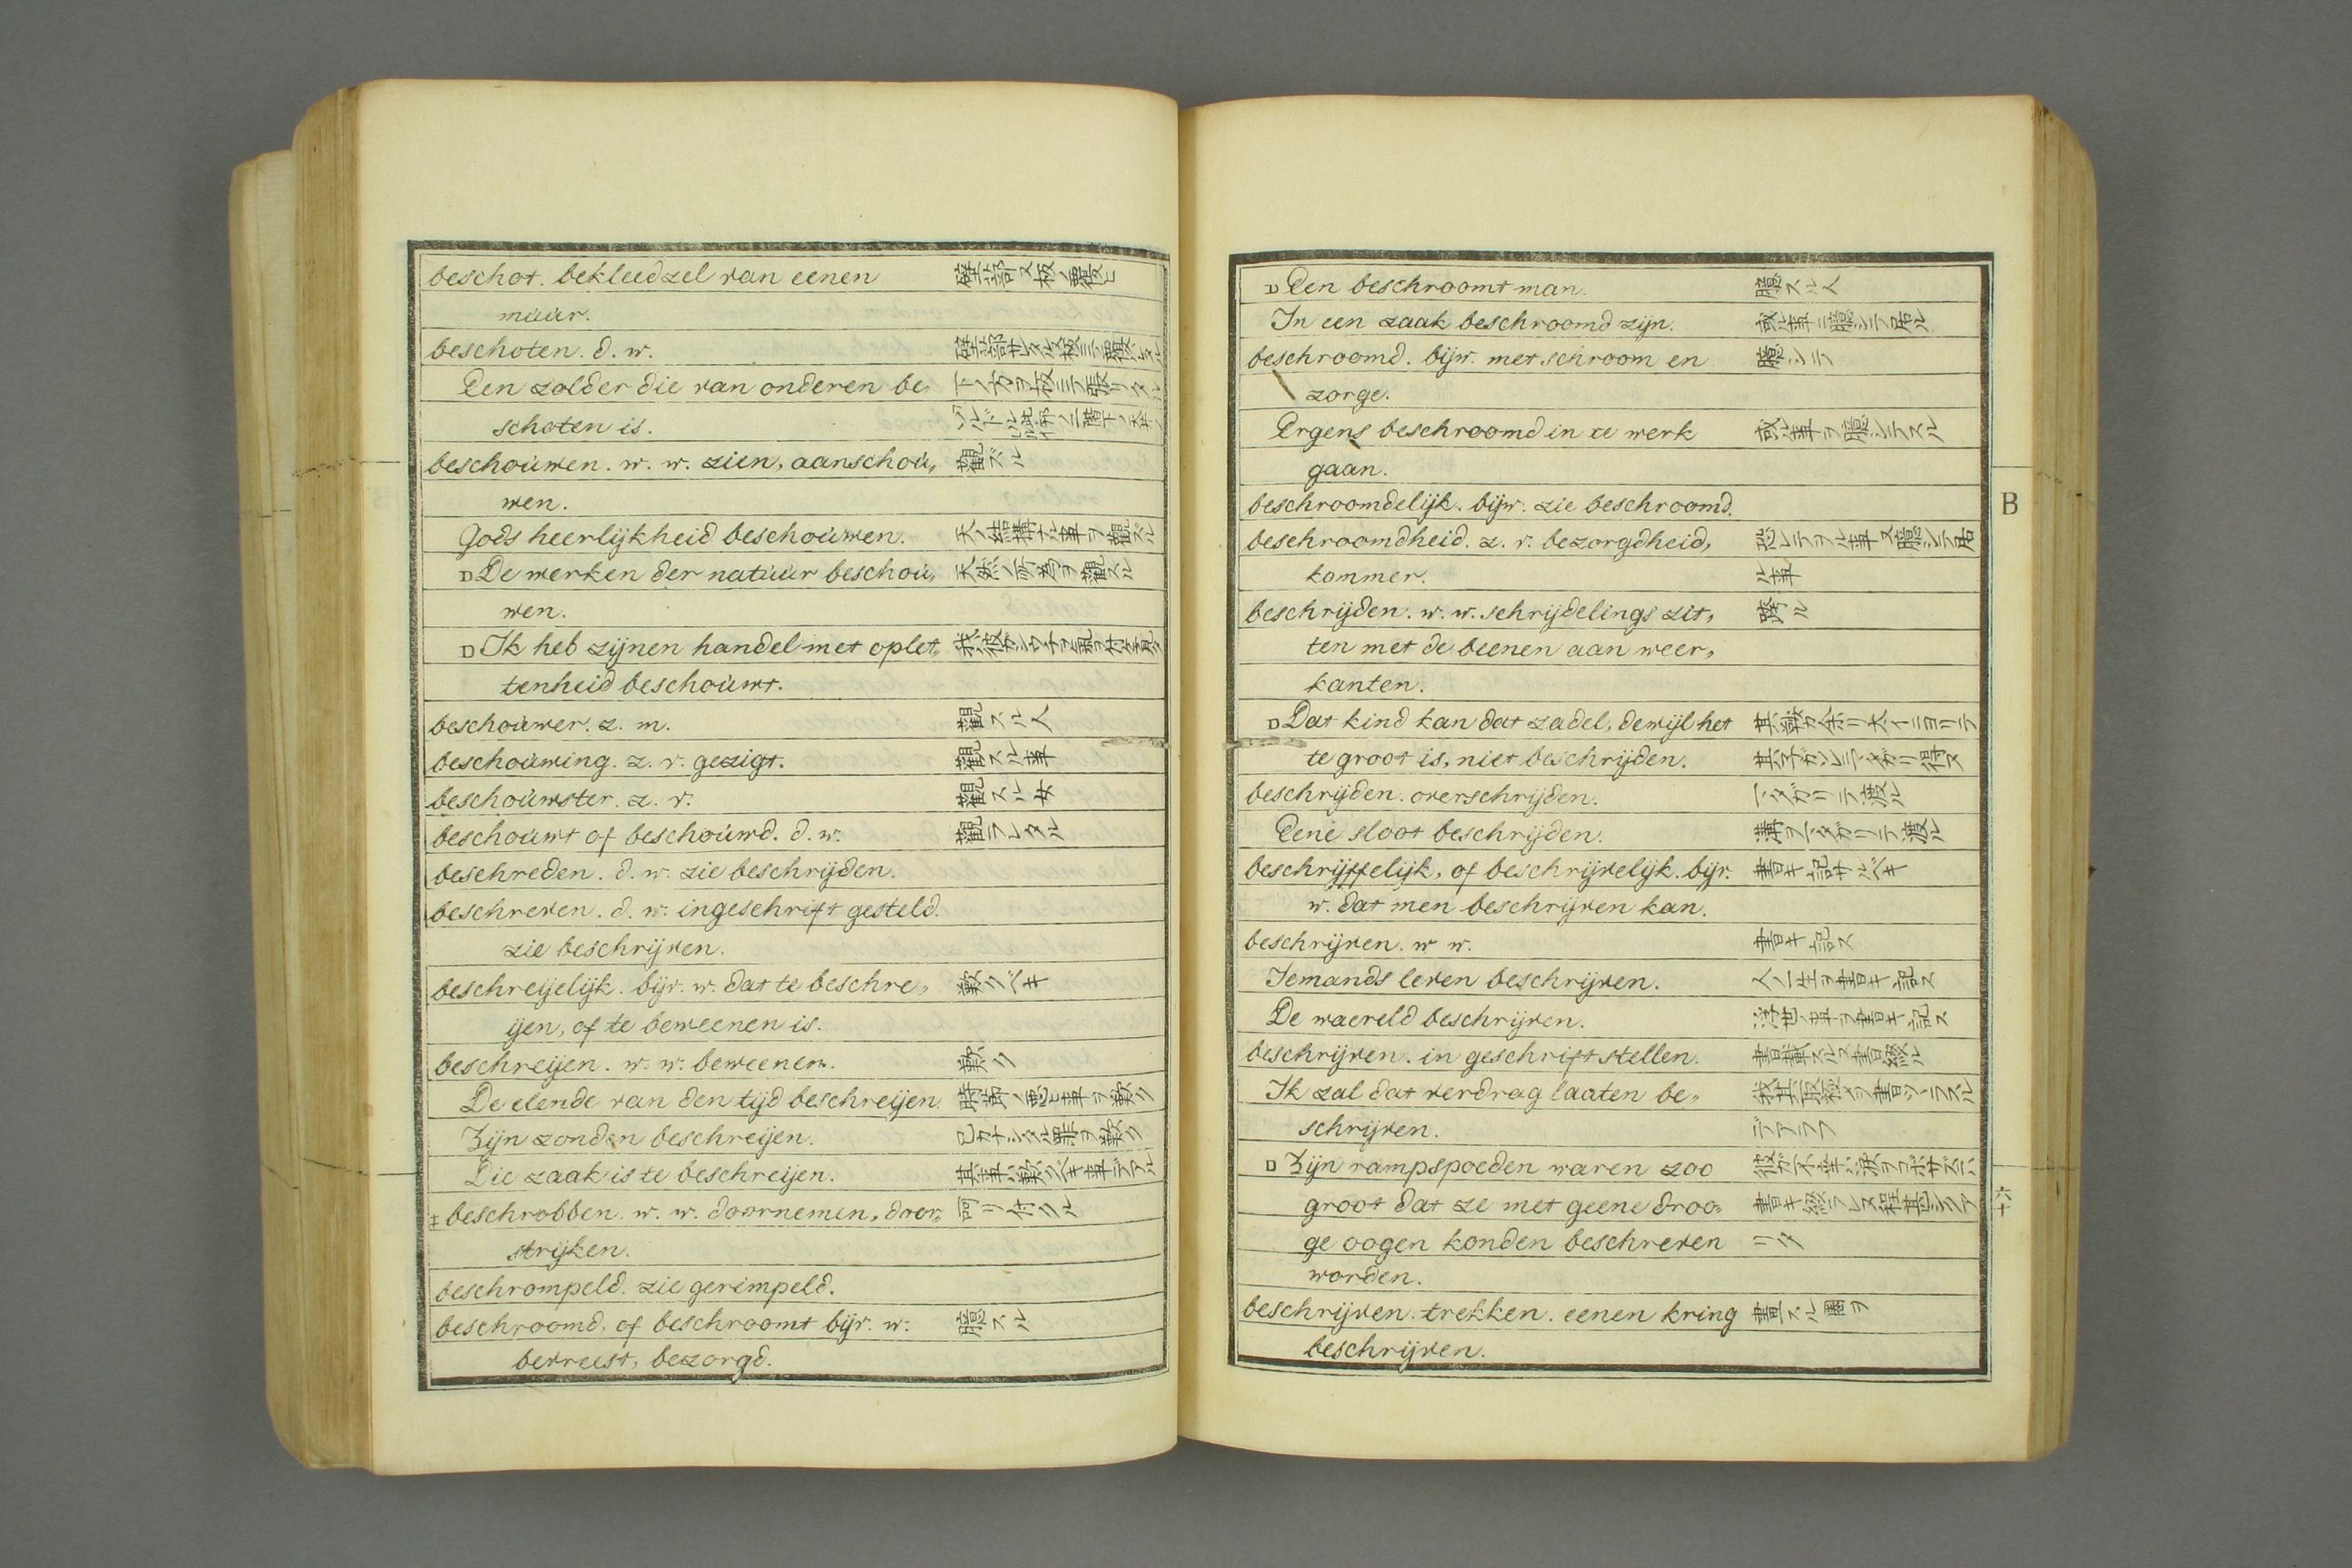 beschot. bekleedzel van eenen 壁部又板ノ覆ヒ
muúr.
beschoten. d. w.
Een zolder die van onderen be„
schoten is.
beschoúwen. w. w. zien, aanschoú„ 観ズル
wen.
Gods heerlijkheid beschoúwen. 天ノ結構ナル事ヲ観ズル
D De werken der natuúr beschoú„ 天然ノ所為ヲ観スル
wen.
D Ik heb zijnen handel met oplet„
tenheid beschoúwt.
beschoúwer. z. m. 観スル人
beschoúwing. z. v. gezigt. 観スル事
beschoúwster. z. v. 観スル女
beschoúwt of beschoúwd. d. w. 観ラレタル
beschreden. d. w. zie beschrijden.
beschreven. d. w. ingeschrift gesteld.
zie beschrijven.
beschreijelijk. bijv. w. dat te beschre„ 歎クベキ
ijen, of te beweenen is.
beschreijen. w. w. beweenen. 歎ク
De elende van den tijd beschreijen. 時節ノ悪ヒ事ヲ歎ク
Zijn zonden beschreijen.
Die zaak is te beschreijen. 其事ハ歎クベキ事デアル
‡ beschrobben. w. w. doornemen, door„ 呵リ付クル
strijken.
beschrompeld. zie gerimpeld.
beschroomd. of beschroomt bijv. w. 臆スル
bevreest, bezorgd.
D Een beschroomt man. 臆スル人
In een zaak beschroomd zijn. 或ル事ニ臆シテ居ル
beschroomd. bijw. met schroom en 臆シテ
zorge.
Ergens beschroomd in te werk 或ル事ヲ臆シテスル
gaan.
beschroomdelijk. bijw. zie beschroomd.
beschroomdheid. z. v. bezorgdheid, 恐レテヲル事又臆シテ居
kommer. ル事
beschrijden. w. w. schrijdelings zit„ 跨ル
ten met de beenen aan weer„
kanten.
D Dat kind kan dat zadel, dewijl het 其鞍カ余リ大イニヨリテ
te groot is, niet beschrijden.
beschrijden. overschrijden. マタガリテ渡ル
Eene sloot beschrijden. 溝ヲマタガリテ渡ル
beschrijffelijk, of beschrijvelijk. bijv. 書キ記サルベキ
w. dat men beschrijven kan.
beschrijven. w w. 書キ記ス
Iemands leven beschrijven. 人ノ一生ヲ書キ記ス
De waereld beschrijven. 浮世ノ事ヲ書キ記ス
beschrijven. in geschrift stellen. 書載スル又書綴ル
Ik zal dat verdrag laaten be„
schrijven. デアラフ
D Zijn rampspoeden waren zoo 彼ガ不幸ハ涙ヲコボサズニハ
groot dat ze met geene droo„ 書キ綴ラレヌ程甚シクア
ge oogen konden beschreven リタ
worden.
beschrijven. trekken. eenen kring 畫スル圏ヲ
beschrijven.
B
十六